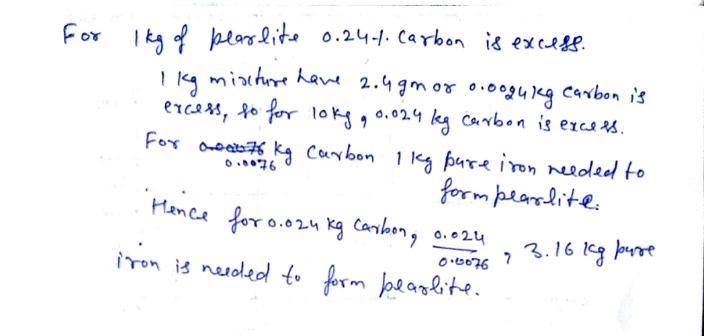 For 1 kg of pearlite 0.24%. Carbon is excess.
1 kg mixture have 2.4 gm or 0.0024 kg Carbon is
excess, so for 10 kg, 0.024 kg carbon is excess.
For 0.0076 kg Carbon 1 kg pure iron needed to
form pearlite.
Hence for 0.024 kg Carbon, 0.024/0.0076, 3.16 kg pure
iron is needed to form pearlite.